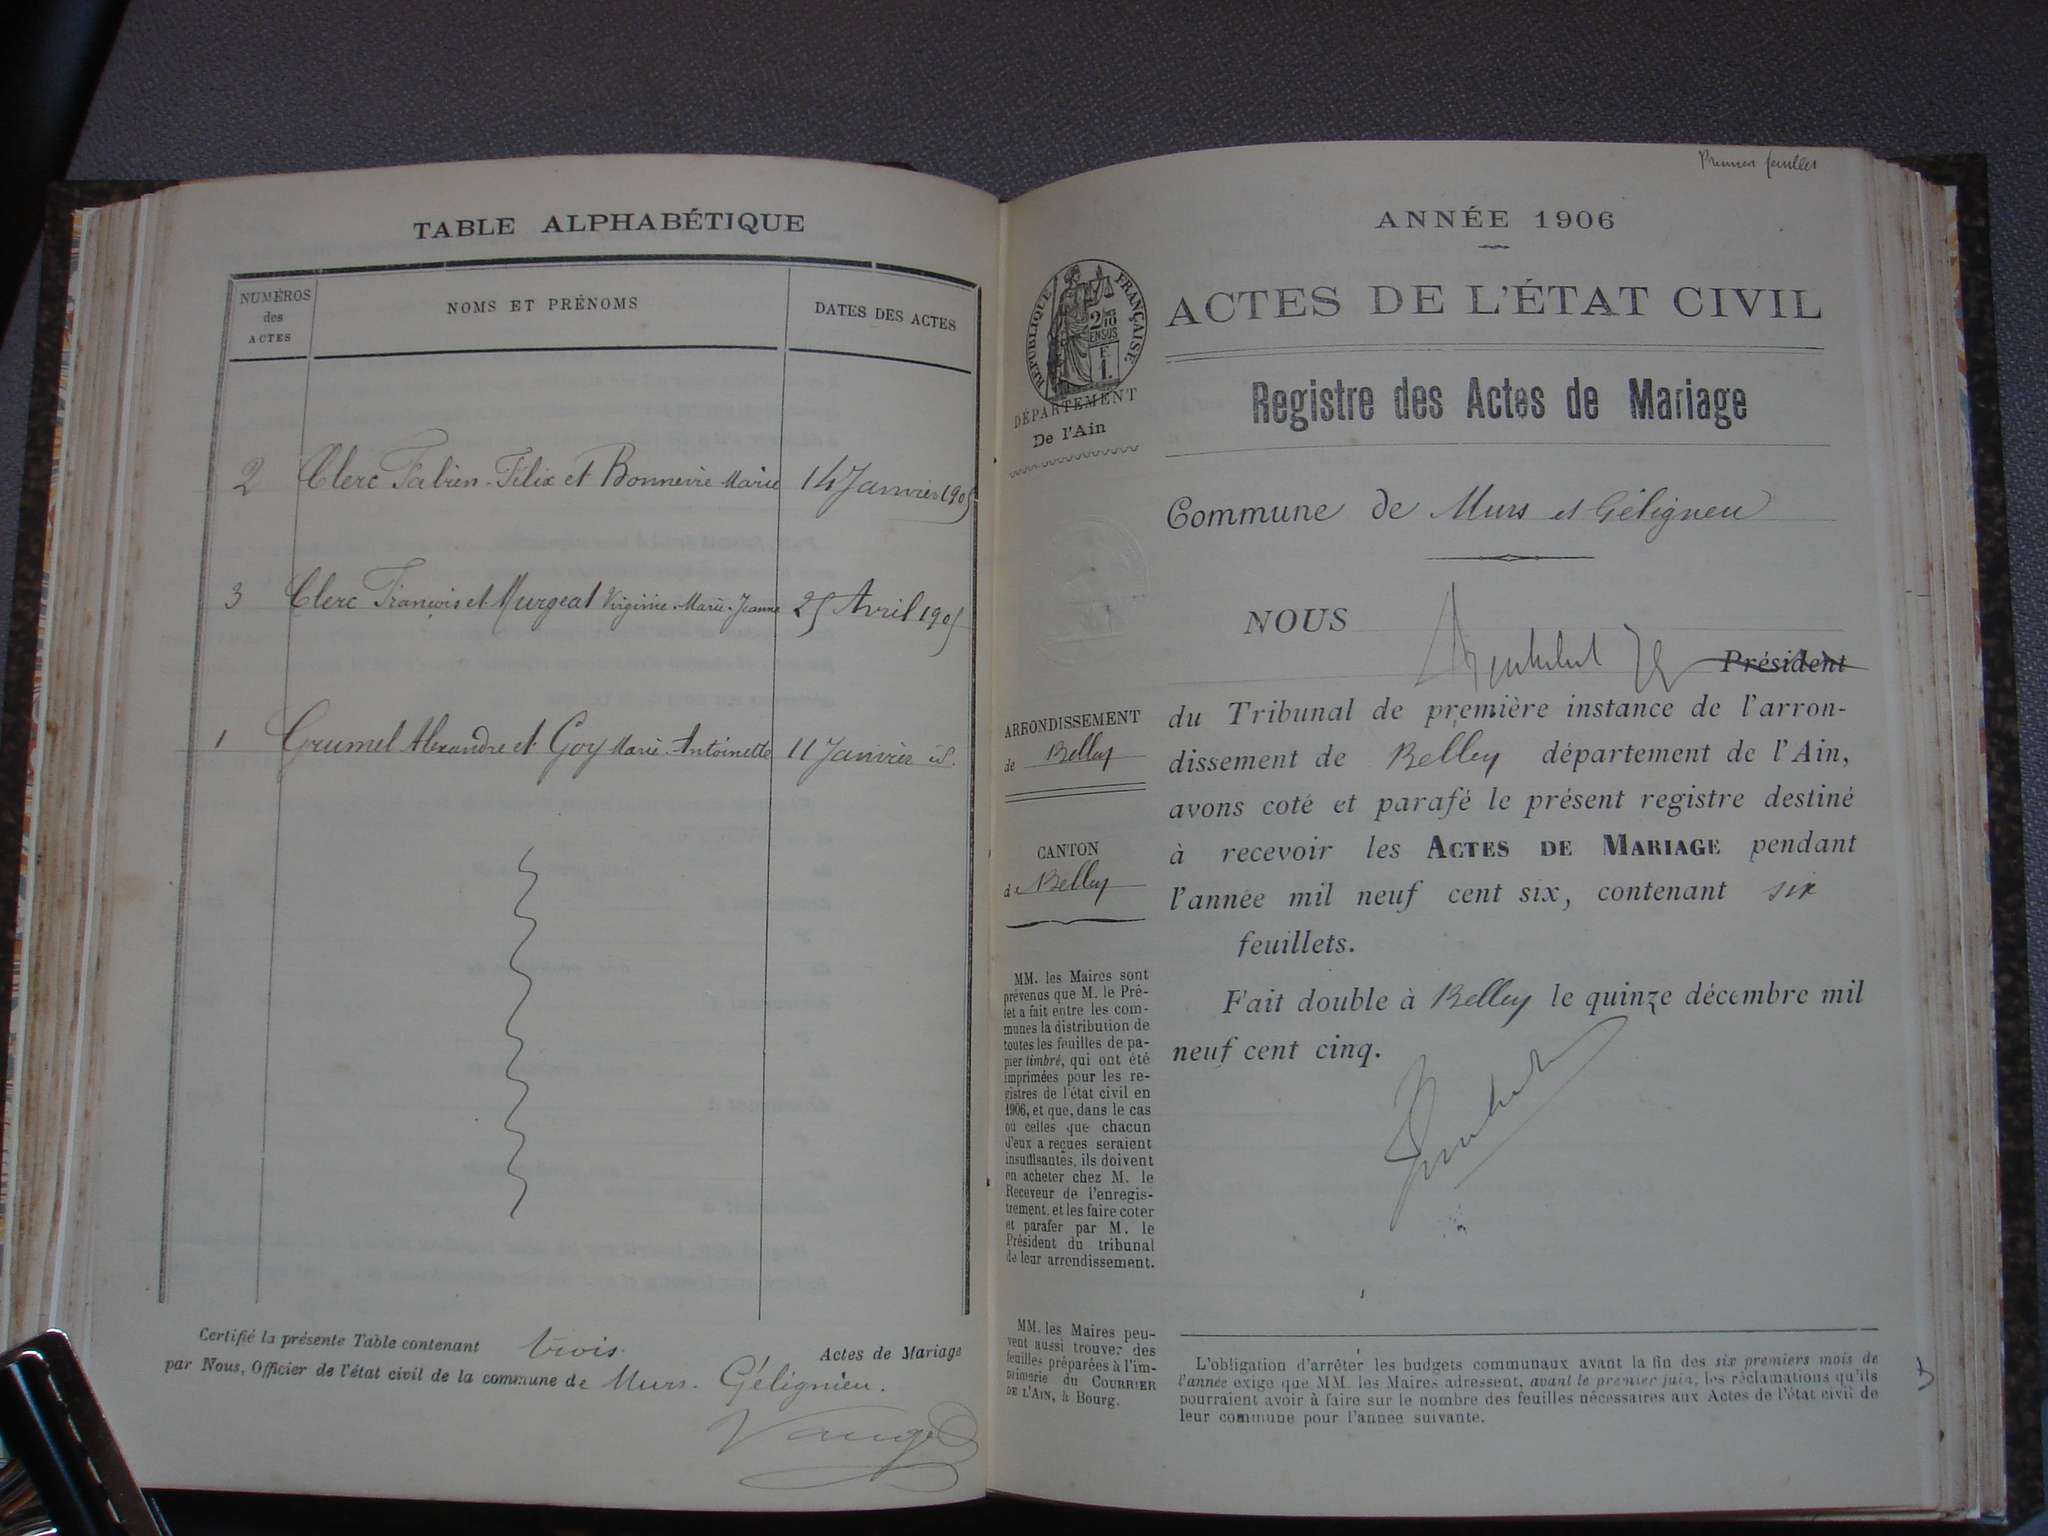 TABLE ALPHABÉTIQUE
NUMÉROS des ACTES
NOMS ET PRÉNOMS
DATES DES ACTES
2 Clerc Fabien-Félix et Bonnevie Marie 14 Janvier 1905
3 Clerc François et Murgeat Virginie-Marie-Jeanne 25 Avril 1905
1 Grumel Alexandre et Goy Marie-Antoinette 11 Janvier id.
Certifié la présente Table contenant trois Actes de Mariage
par Nous, Officier de l'état civil de la commune de Murs-Gélignieu.
Premier feuillet
ANNÉE 1906
RÉPUBLIQUE FRANÇAISE
2/10 EN SUS
F
1.
DÉPARTEMENT
De l'Ain
ACTES DE L'ÉTAT CIVIL
Registre des Actes de Mariage
Commune de Murs et Géligneu
NOUS
Président
du Tribunal de première instance de l'arron-
dissement de Belley département de l'Ain,
avons coté et parafé le présent registre destiné
à recevoir les ACTES DE MARIAGE pendant
l'année mil neuf cent six, contenant six
feuillets.
Fait double à Belley le quinze décembre mil
neuf cent cinq.
ARRONDISSEMENT
de Belley
CANTON
de Belley
MM. les Maires sont
prévenus que M. le Pré-
fet a fait entre les com-
munes la distribution de
toutes les feuilles de pa-
pier timbré, qui ont été
imprimées pour les re-
gistres de l'état civil en
1906, et que, dans le cas
où celles que chacun
d'eux a reçues seraient
insuffisantes, ils doivent
en acheter chez M. le
Receveur de l'enregis-
trement, et les faire coter
et parafer par M. le
Président du tribunal
de leur arrondissement.
MM. les Maires peu-
vent aussi trouver des
feuilles préparées à l'im-
primerie du COURRIER
DE L'AIN, à Bourg.
L'obligation d'arrêter les budgets communaux avant la fin des six premiers mois de
l'année exige que MM. les Maires adressent, avant le premier juin, les réclamations qu'ils
pourraient avoir à faire sur le nombre des feuilles nécessaires aux Actes de l'état civil de
leur commune pour l'année suivante.